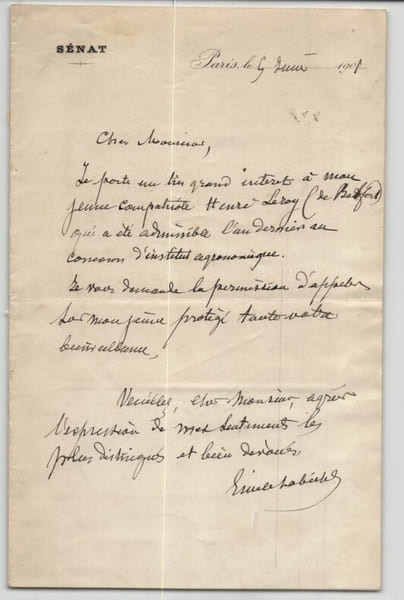 SÉNAT
Paris, le 5 Juin 1901
Cher Monsieur,
Je porte un très grand interet à mon
jeune compatriote Henri Leroy (de
qui a été admissible l'an dernier au
concours d'institut agronomique.
Je vous demande la permission d'appeler
sur mon jeune protégé toute votre
bienveillance.
Veuillez, cher Monsieur, agréer
l'expression de mes sentiments les
plus distingués et bien dévoués
Emile Labiche